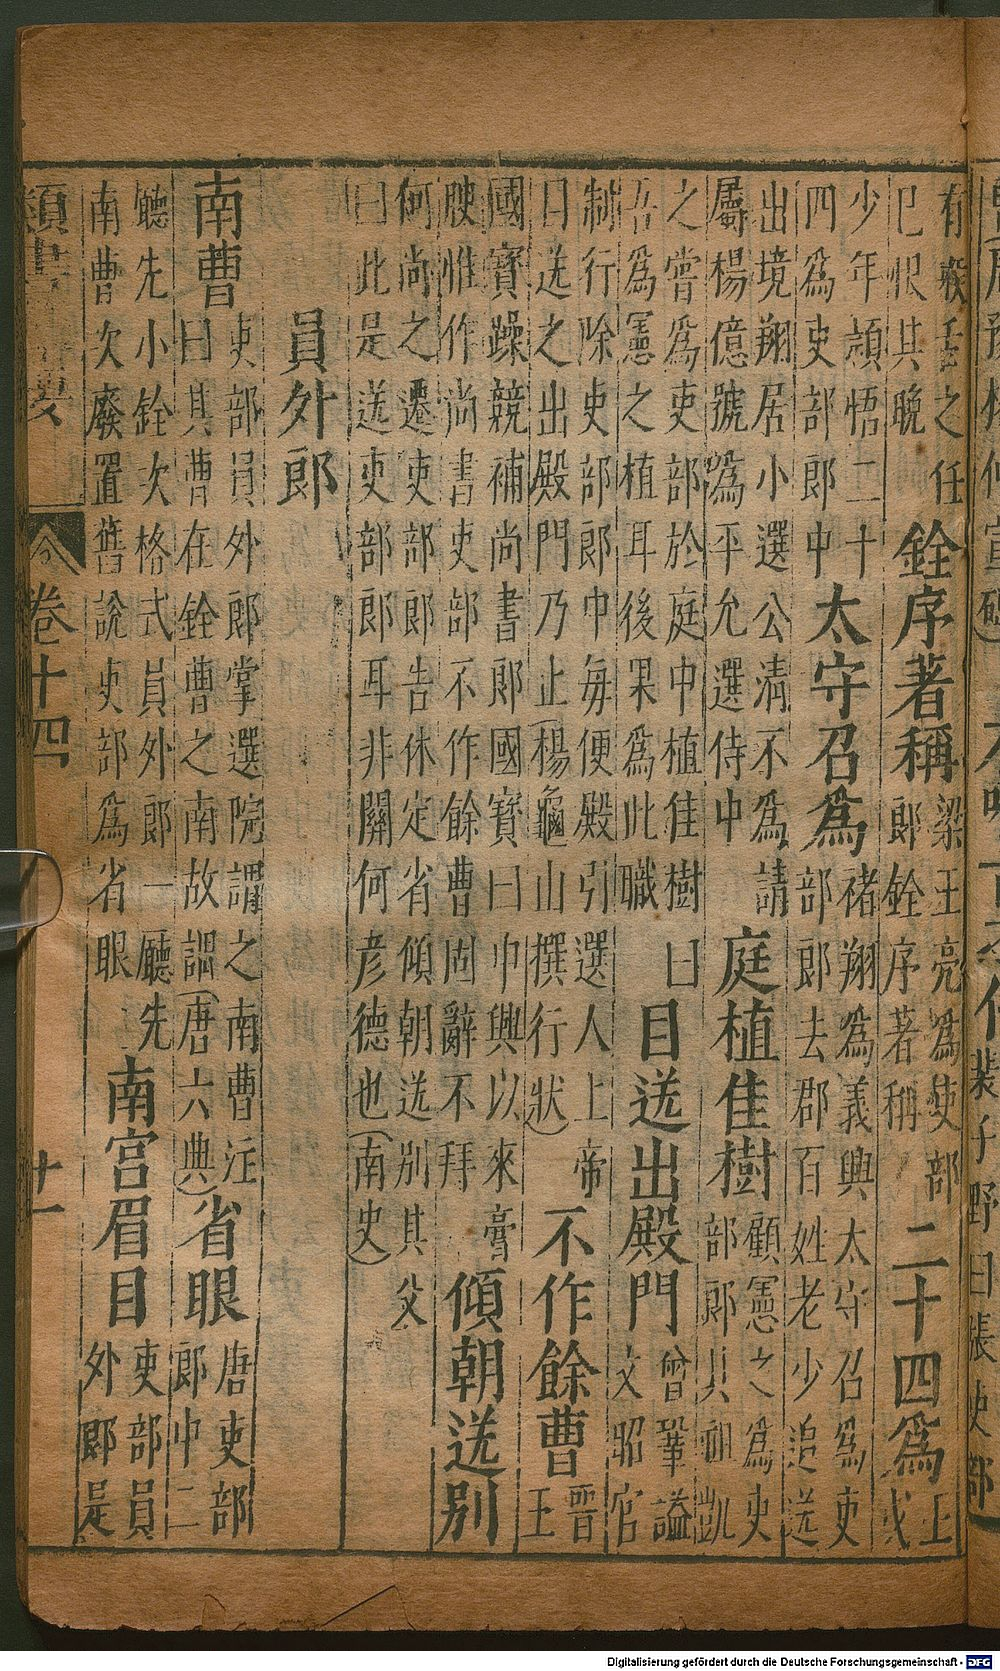 有 之任銓序著稱梁王亮為吏部二十四爲上
巳恨其晚 郎銓序著稱 或
少年頴悟二十太守召爲禇翔為義興太守召為吏
四爲吏部郎中 部郎去郡百姓老少追送
出境翔居小選公清不為請庭植佳樹顧憲之為吏
屬楊億號為平允選侍中 部郎其祖凱
之嘗為吏部於庭中植佳樹曰目送出殿門曾鞏謚
吾為憲之植耳後果為此職 文昭官
制行除吏部郎中毎便殿引選人上帝不作餘曹晉
日送之出殿門乃止(楊龜山撰行狀) 王
國寶躁競補尚書郎國寶曰中興以來膏傾朝送别
腴惟作尚書吏部不作餘曹固辭不拜
何尚之遷吏部郎告休定省傾朝送别其父
曰此是送吏部郎耳非關何彦德也(南史)
員外郎
南曹吏部員外郎掌選院謂之南曹注省眼唐吏部
曰其曹在銓曹之南故謂(唐六典) 郎中二
聽先小銓次格式員外郎一廳先南宮眉目吏部員
南曹次廢置舊說吏部為省眼 外郎是
類書 卷十四 廿一
Digitalisierung gefördert durch die Deutsche Forschungsgemeinschaft - DFG